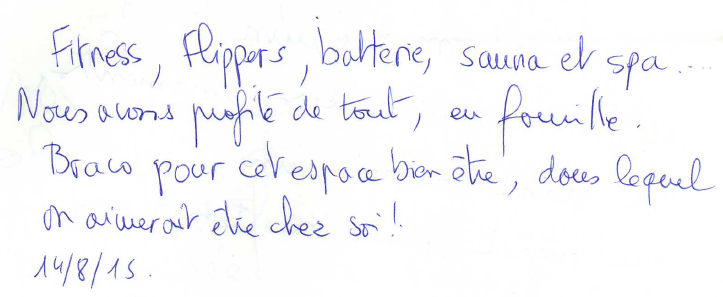 Fitness, Flippers, batterie, sauna et spa...
Nous avons profité de tout, en famille.
Bravo pour cet espace bien être, dans lequel
on aimerait être chez soi!
14/8/15.